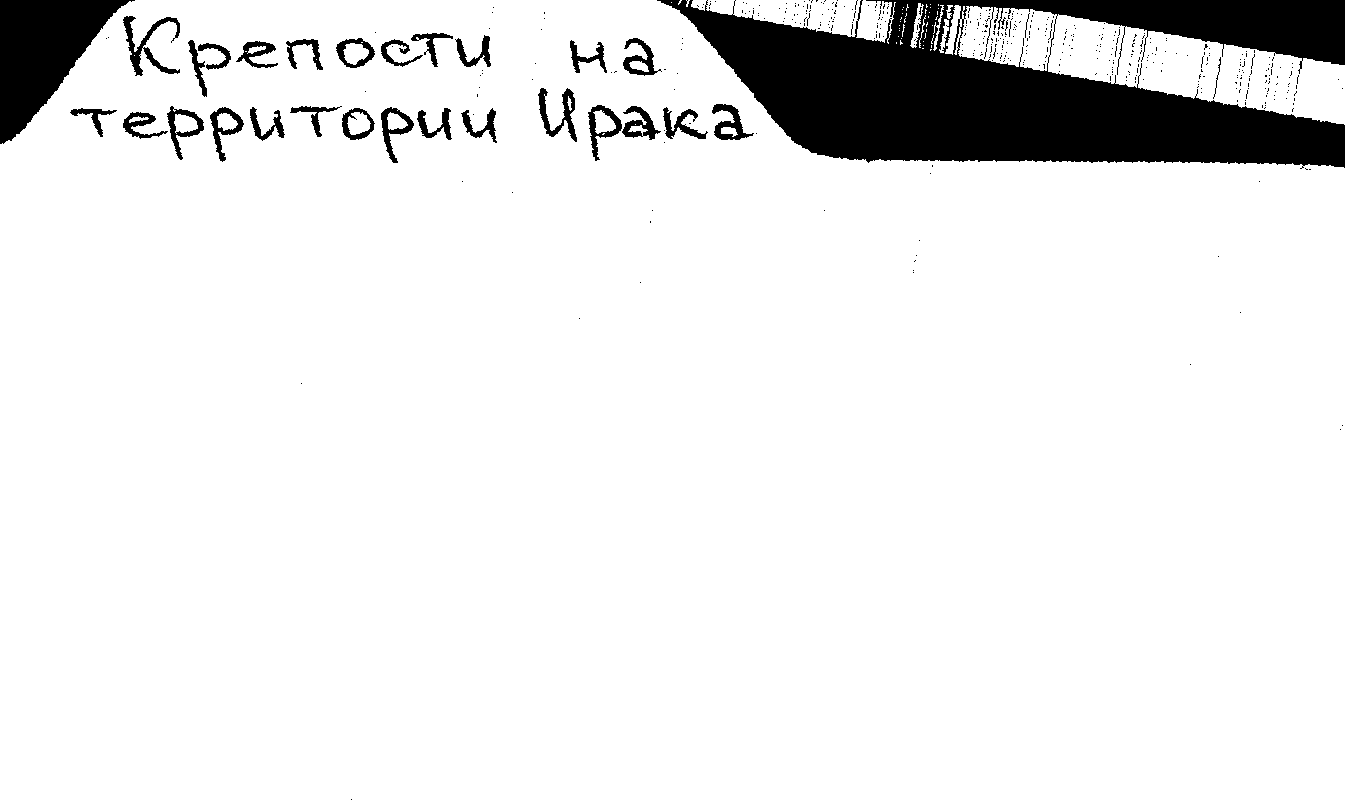 Крепости на
территории Ирака